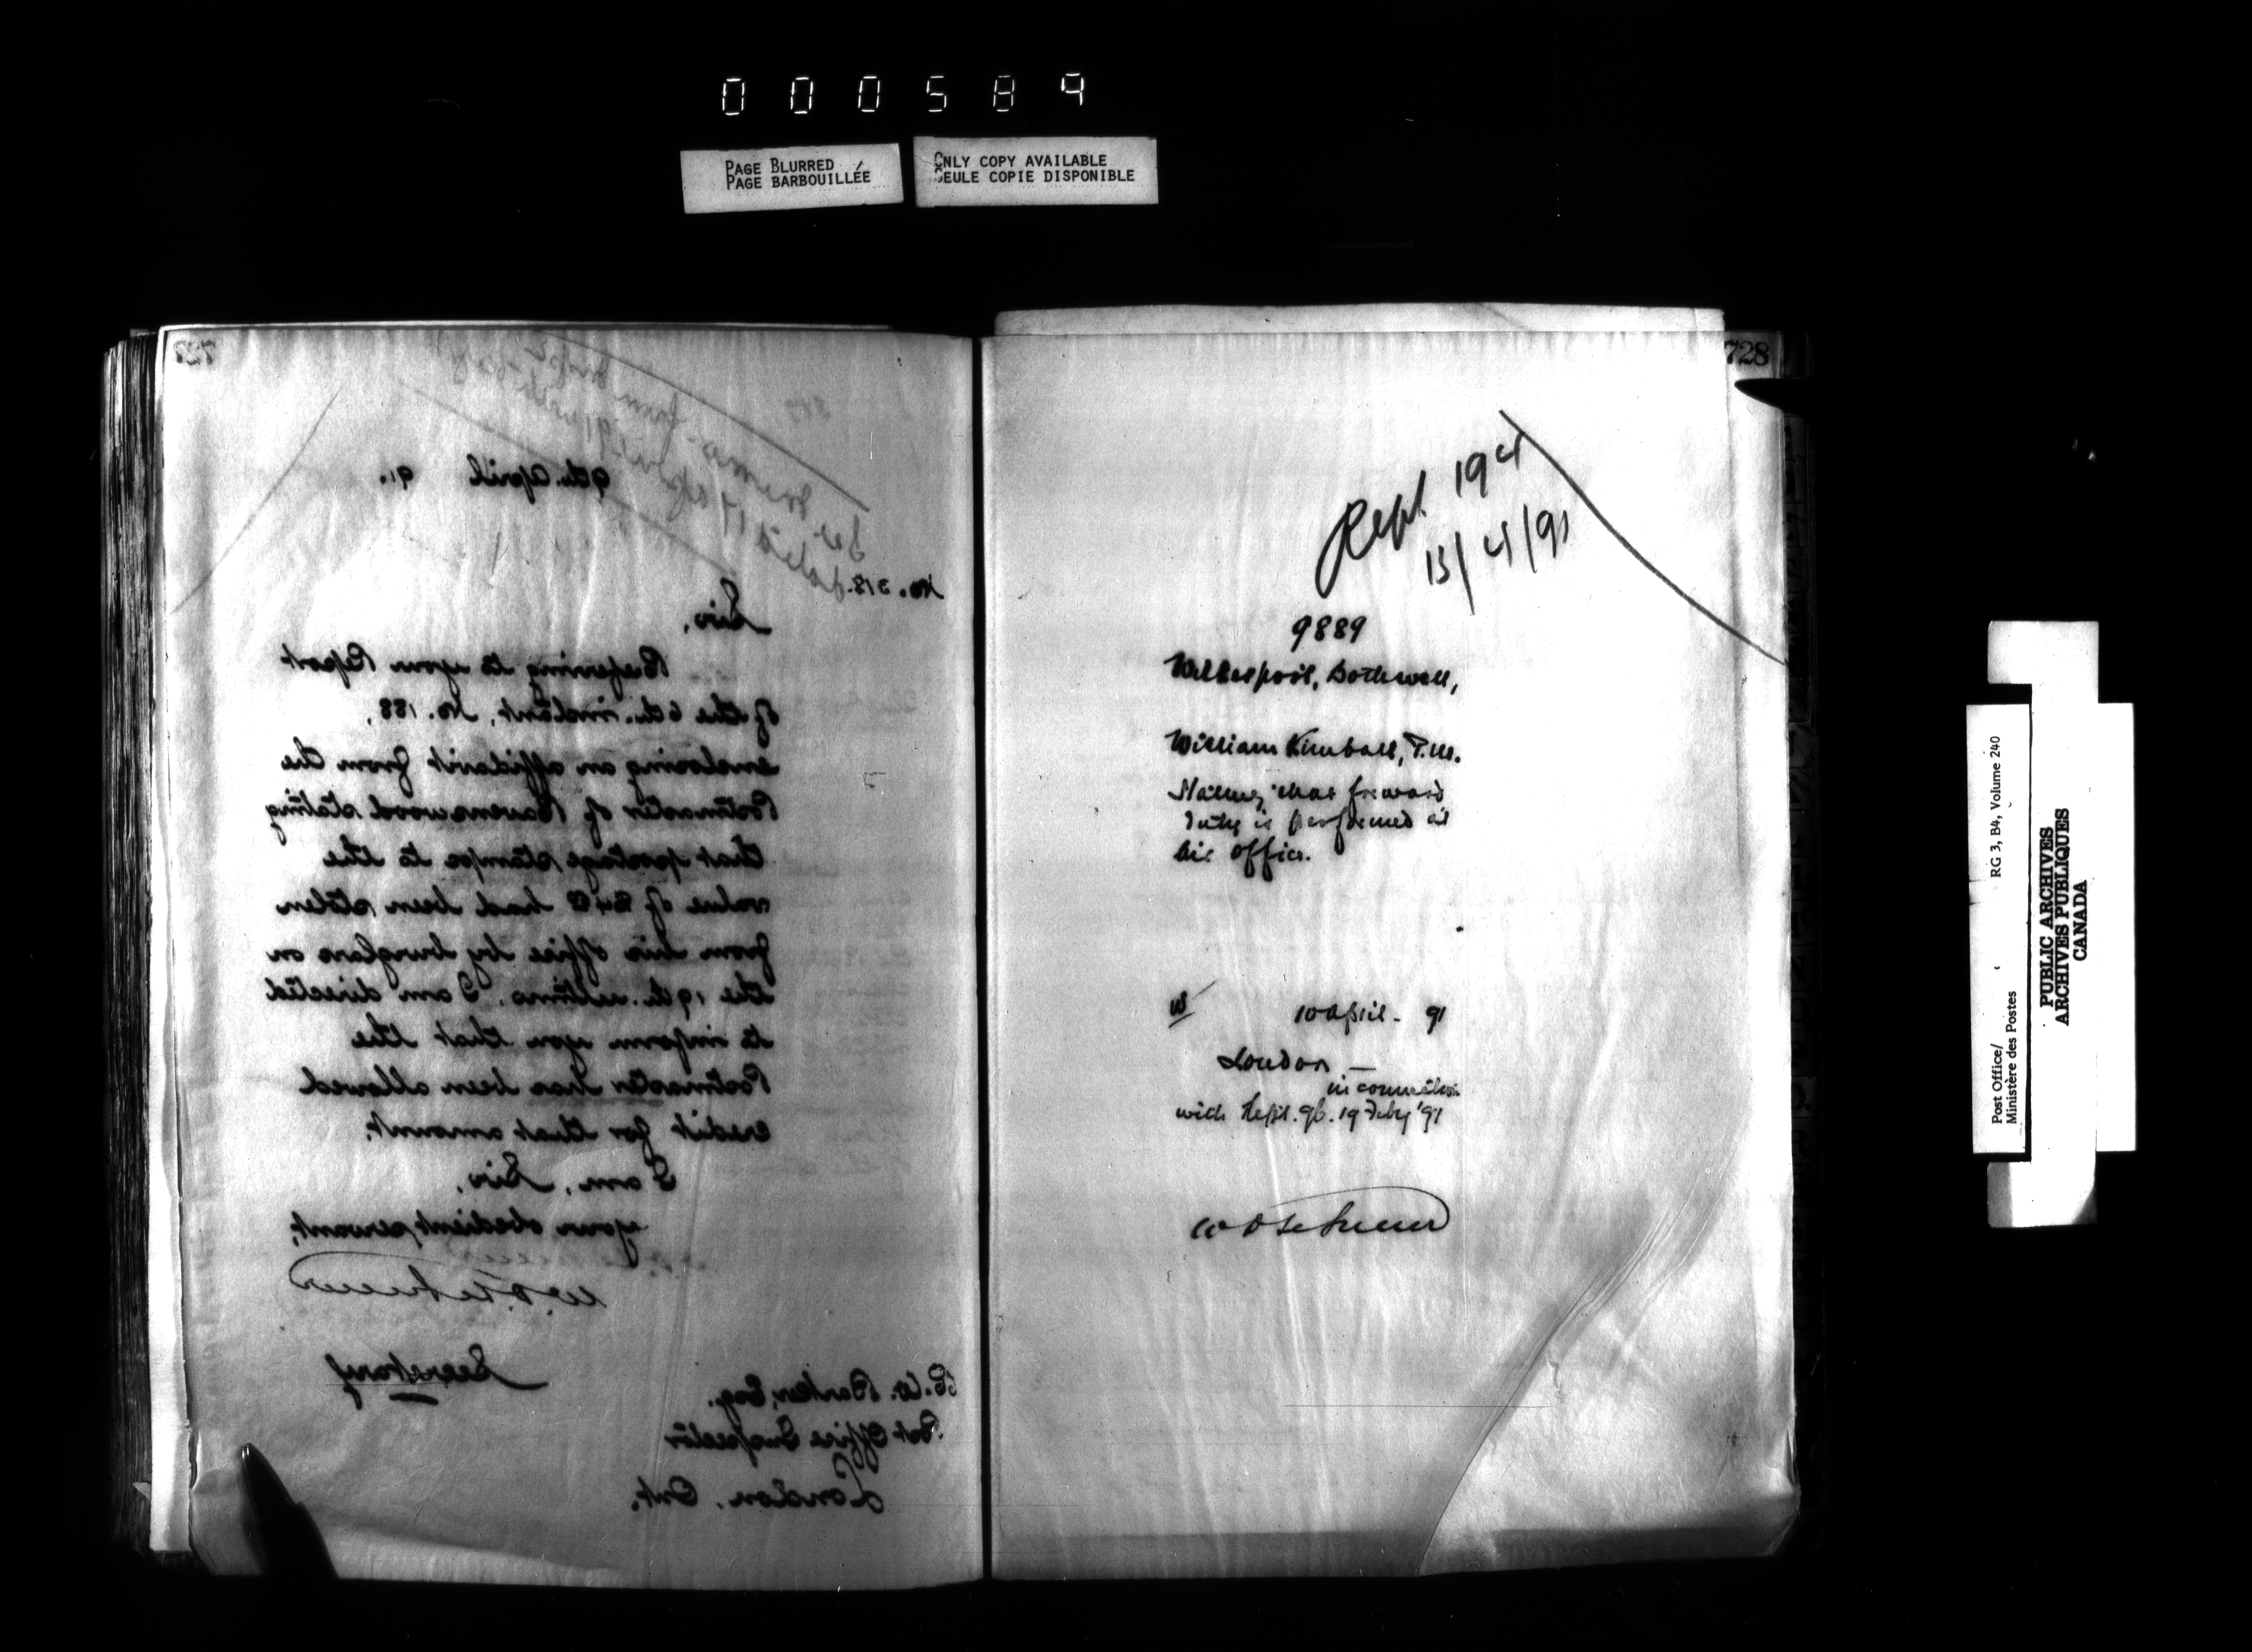 000589
PAGE BLURRED
PAGE BARBOUILLÉE
ONLY COPY AVAILABLE
SEULE COPIE DISPONIBLE
727
See memo. from
dated 17 April 91
9th. April 91.
No. 318.
Sir,
Referring to your Report
of the 6th. instant, No. 188,
enclosing an affidavit from the
Postmaster of Ravenswood stating
that postage stamps to the
value of $48 had been stolen
from his office by burglars on
the 19th. ultimo, I am directed
to inform you that the
Postmaster has been allowed
credit for that amount.
I am, Sir,
your obedient servant,
W. D. LeSueur
Secretary
R. W. Barker, Esq.
Post Office Inspector
London, Ont.
728
Rept 194
13/4/91
9889
Bothwell,
William Kimball, P.M.
Stating that forward
duty is performed at
his office.
W
10 April - 91
London —
in connection
with Rept. 96. 19 Feby '91
W D LeSueur
Post Office/
Ministère des Postes
RG 3, B4, Volume 240
PUBLIC ARCHIVES
ARCHIVES PUBLIQUES
CANADA